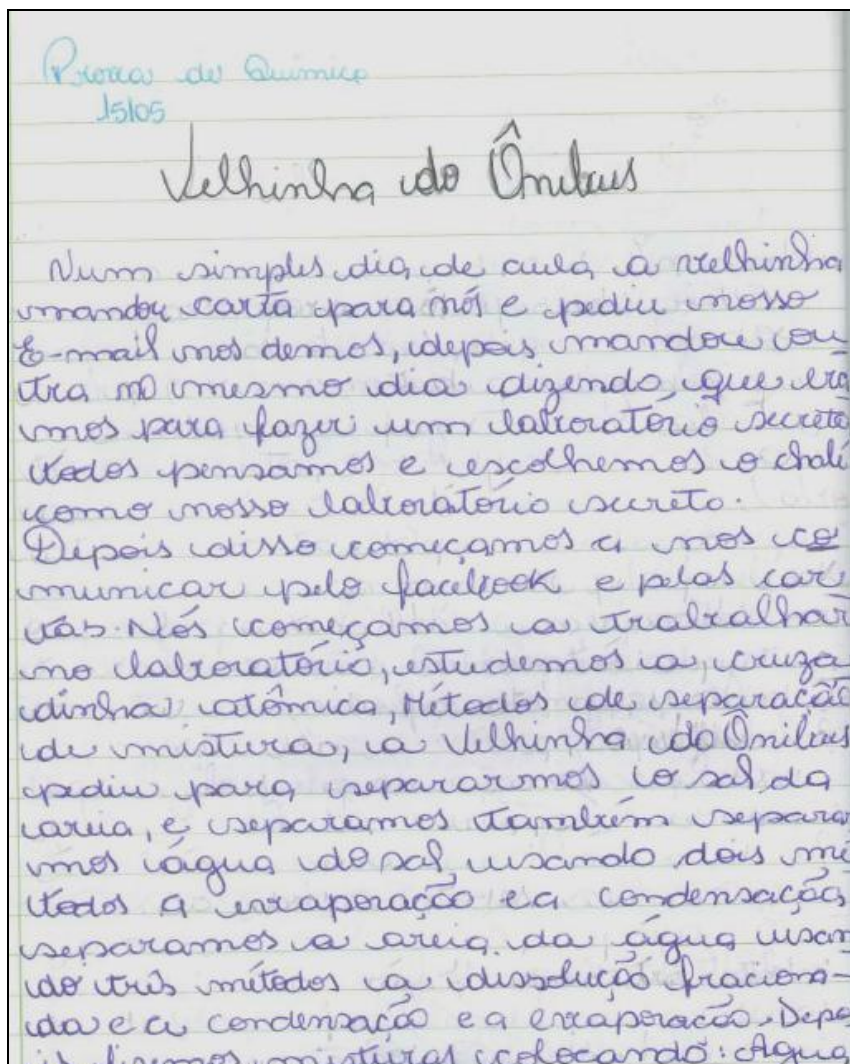 Prova de Química
15/05
Velhinha do Ônibus
Num simples dia de aula a velhinha
mandou carta para nós e pediu nosso
E-mail nos demos, depois mandou ou
tra no mesmo dia dizendo, que era
mos para fazer um laboratório secreto
todos pensamos e escolhemos o chalé
como nosso laboratório secreto.
Depois disso começamos a nos co
municar pelo facebook e pelas car
tas. Nós começamos a trabalhar
no laboratório, estudemos a cruza
dinha atômica, Métodos de separação
de mistura, a Velhinha do Ônibus
pediu para separarmos o sal da
areia, e separamos também separa
mos água do sal usando dois mé
todos a evaporação e a condensação,
separamos a areia da água usan
do três métodos a dissolução fraciona-
da e a condensação e a evaporação. Depo
is fizemos misturas colocando: Água